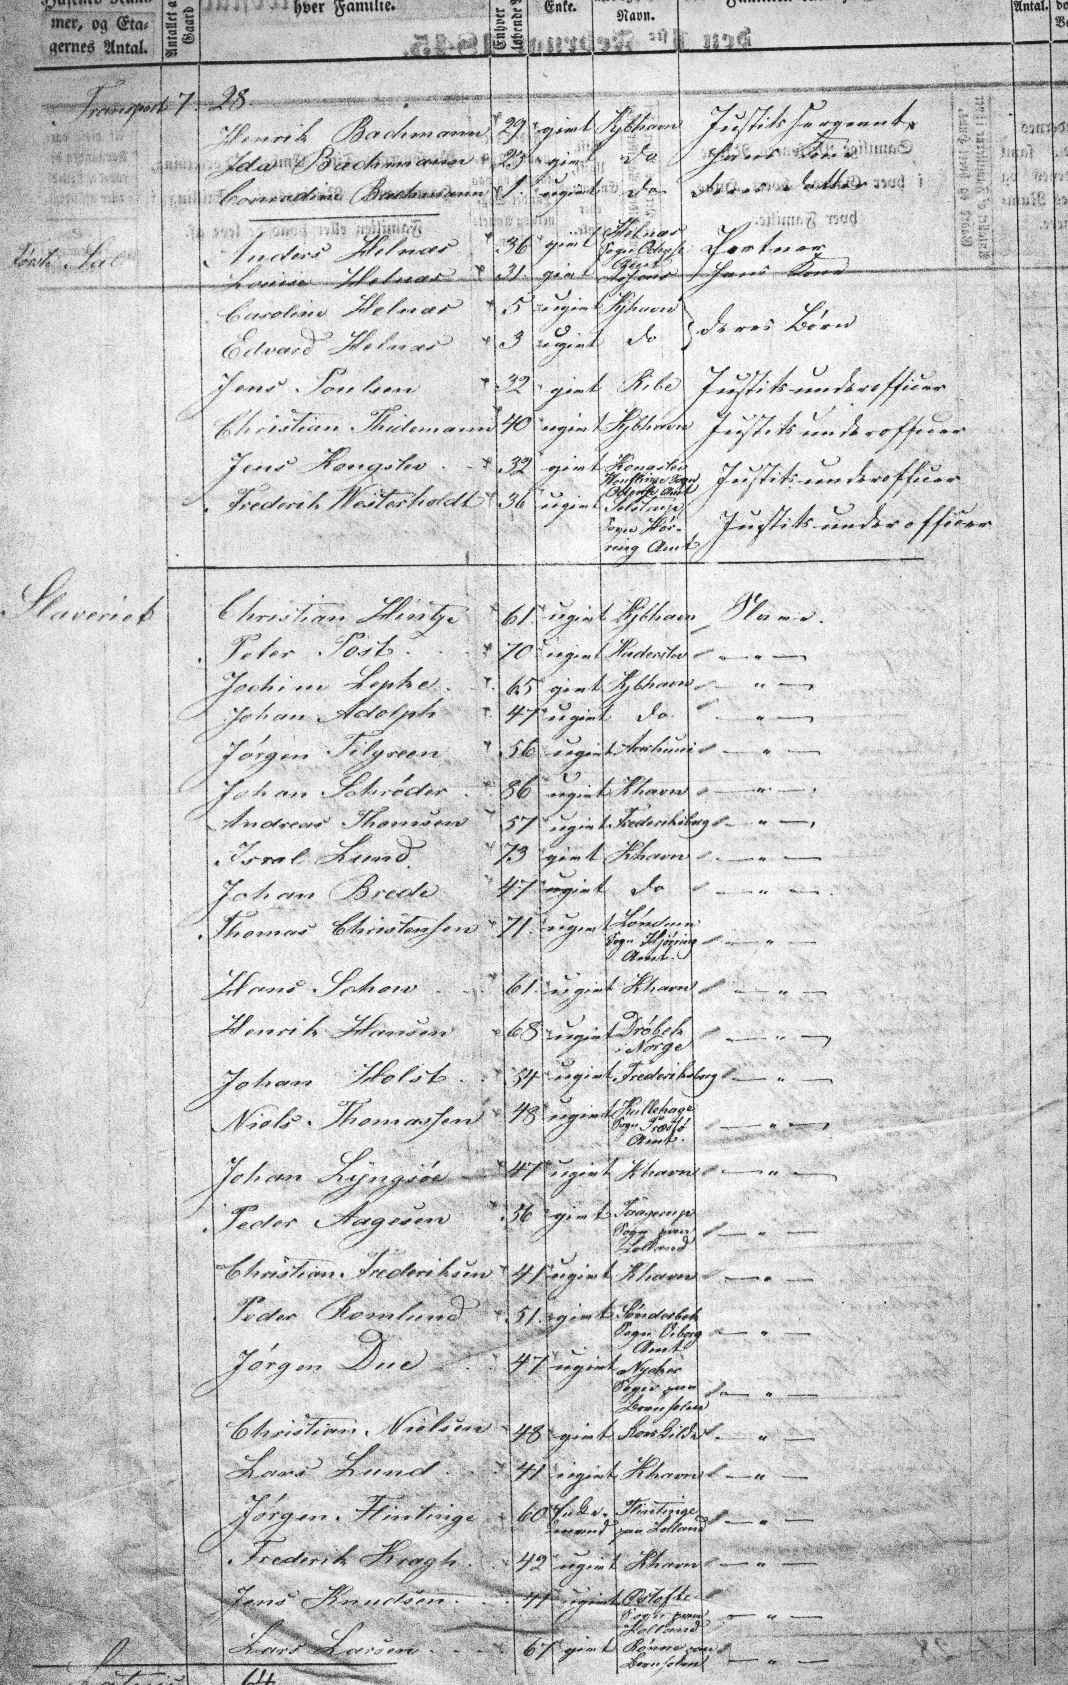 mer, og Eta-
gernes Antal.
Antallet a
Gaard
hver Familie.
Enhver
løbende
Enke.
Navn.
Antal.
den 1ste Februar 1845.
Transport 7. 28.
Henrik Bachmann 29 givt Kjbhavn Justitssergeant
Ida Bachmann 23 givt do hans Kone
Conradine Bachmann 1. ugivt do deres Datter
Første Sal
Anders Helnæs 36 givt Helnæs Sogn Odense Portner
Louise Helnæs 31 givt hans Kone
Caroline Helnæs 5 ugivt Kjbhavn
Edvard Helnæs 3 ugivt do deres Børn
Jens Poulsen 32 givt Ribe Justitsunderofficer
Christian Thielemann 40 ugivt Kjbhavn Justitsunderofficer
Jens Kongslev 32 givt Kongslev
Sogn
Odense Amt Justitsunderofficer
Frederik Westerholdt 36 ugivt
Sogn Hjør-
ring Amt Justitsunderofficer
Slaveriet
Christian Hintze 61 ugivt Kjbhavn Slave.
Peter Post 70 ugivt Haderslev — " —
Jochim Lepke 65 givt Kjbhavn — " —
Johan Adolph 47 ugivt do — " —
Jørgen Filgreen 56 ugivt Aarhuus — " —
Johan Schrøder 36 ugivt Khavn — " —
Andreas Thomsen 57 ugivt Frederiksberg — " —
Isral Lund 73 givt Khavn — " —
Johan Brede 47 ugivt do — " —
Thomas Christensen 71 ugivt
Sogn Hjøring
Amt. — " —
Hans Schow 61 ugivt Khavn — " —
Henrik Hansen 68 ugivt Drøbek
i Norge — " —
Johan Holst 54 ugivt Frederiksberg — " —
Niels Thomassen 48 ugivt
Sogn Præstø
Amt. — " —
Johan Lÿngsøe 47 ugivt Khavn — " —
Peder Aagesen 56 givt Taagerup
Sogn paa
Lolland — " —
Christian Frederiksen 41 ugivt Khavn — " —
Peder Romlund 51 givt Sønderbek
Sogn Viborg
Amt — " —
Jørgen Due 47 ugivt Nyker
Sogn paa
Bornholm — " —
Christian Nielsen 48 givt Roeskilde — " —
Lars Lund 41 ugivt Khavn — " —
Jørgen Flintinge 60 Enke-
mand Flintinge
paa Lolland — " —
Frederik Kragh 42 ugivt Khavn — " —
Jens Knudsen 41 ugivt Østofte
Sogn paa
Lolland — " —
Lars Larsen 67 givt Rønne paa
Bornholm — " —
64